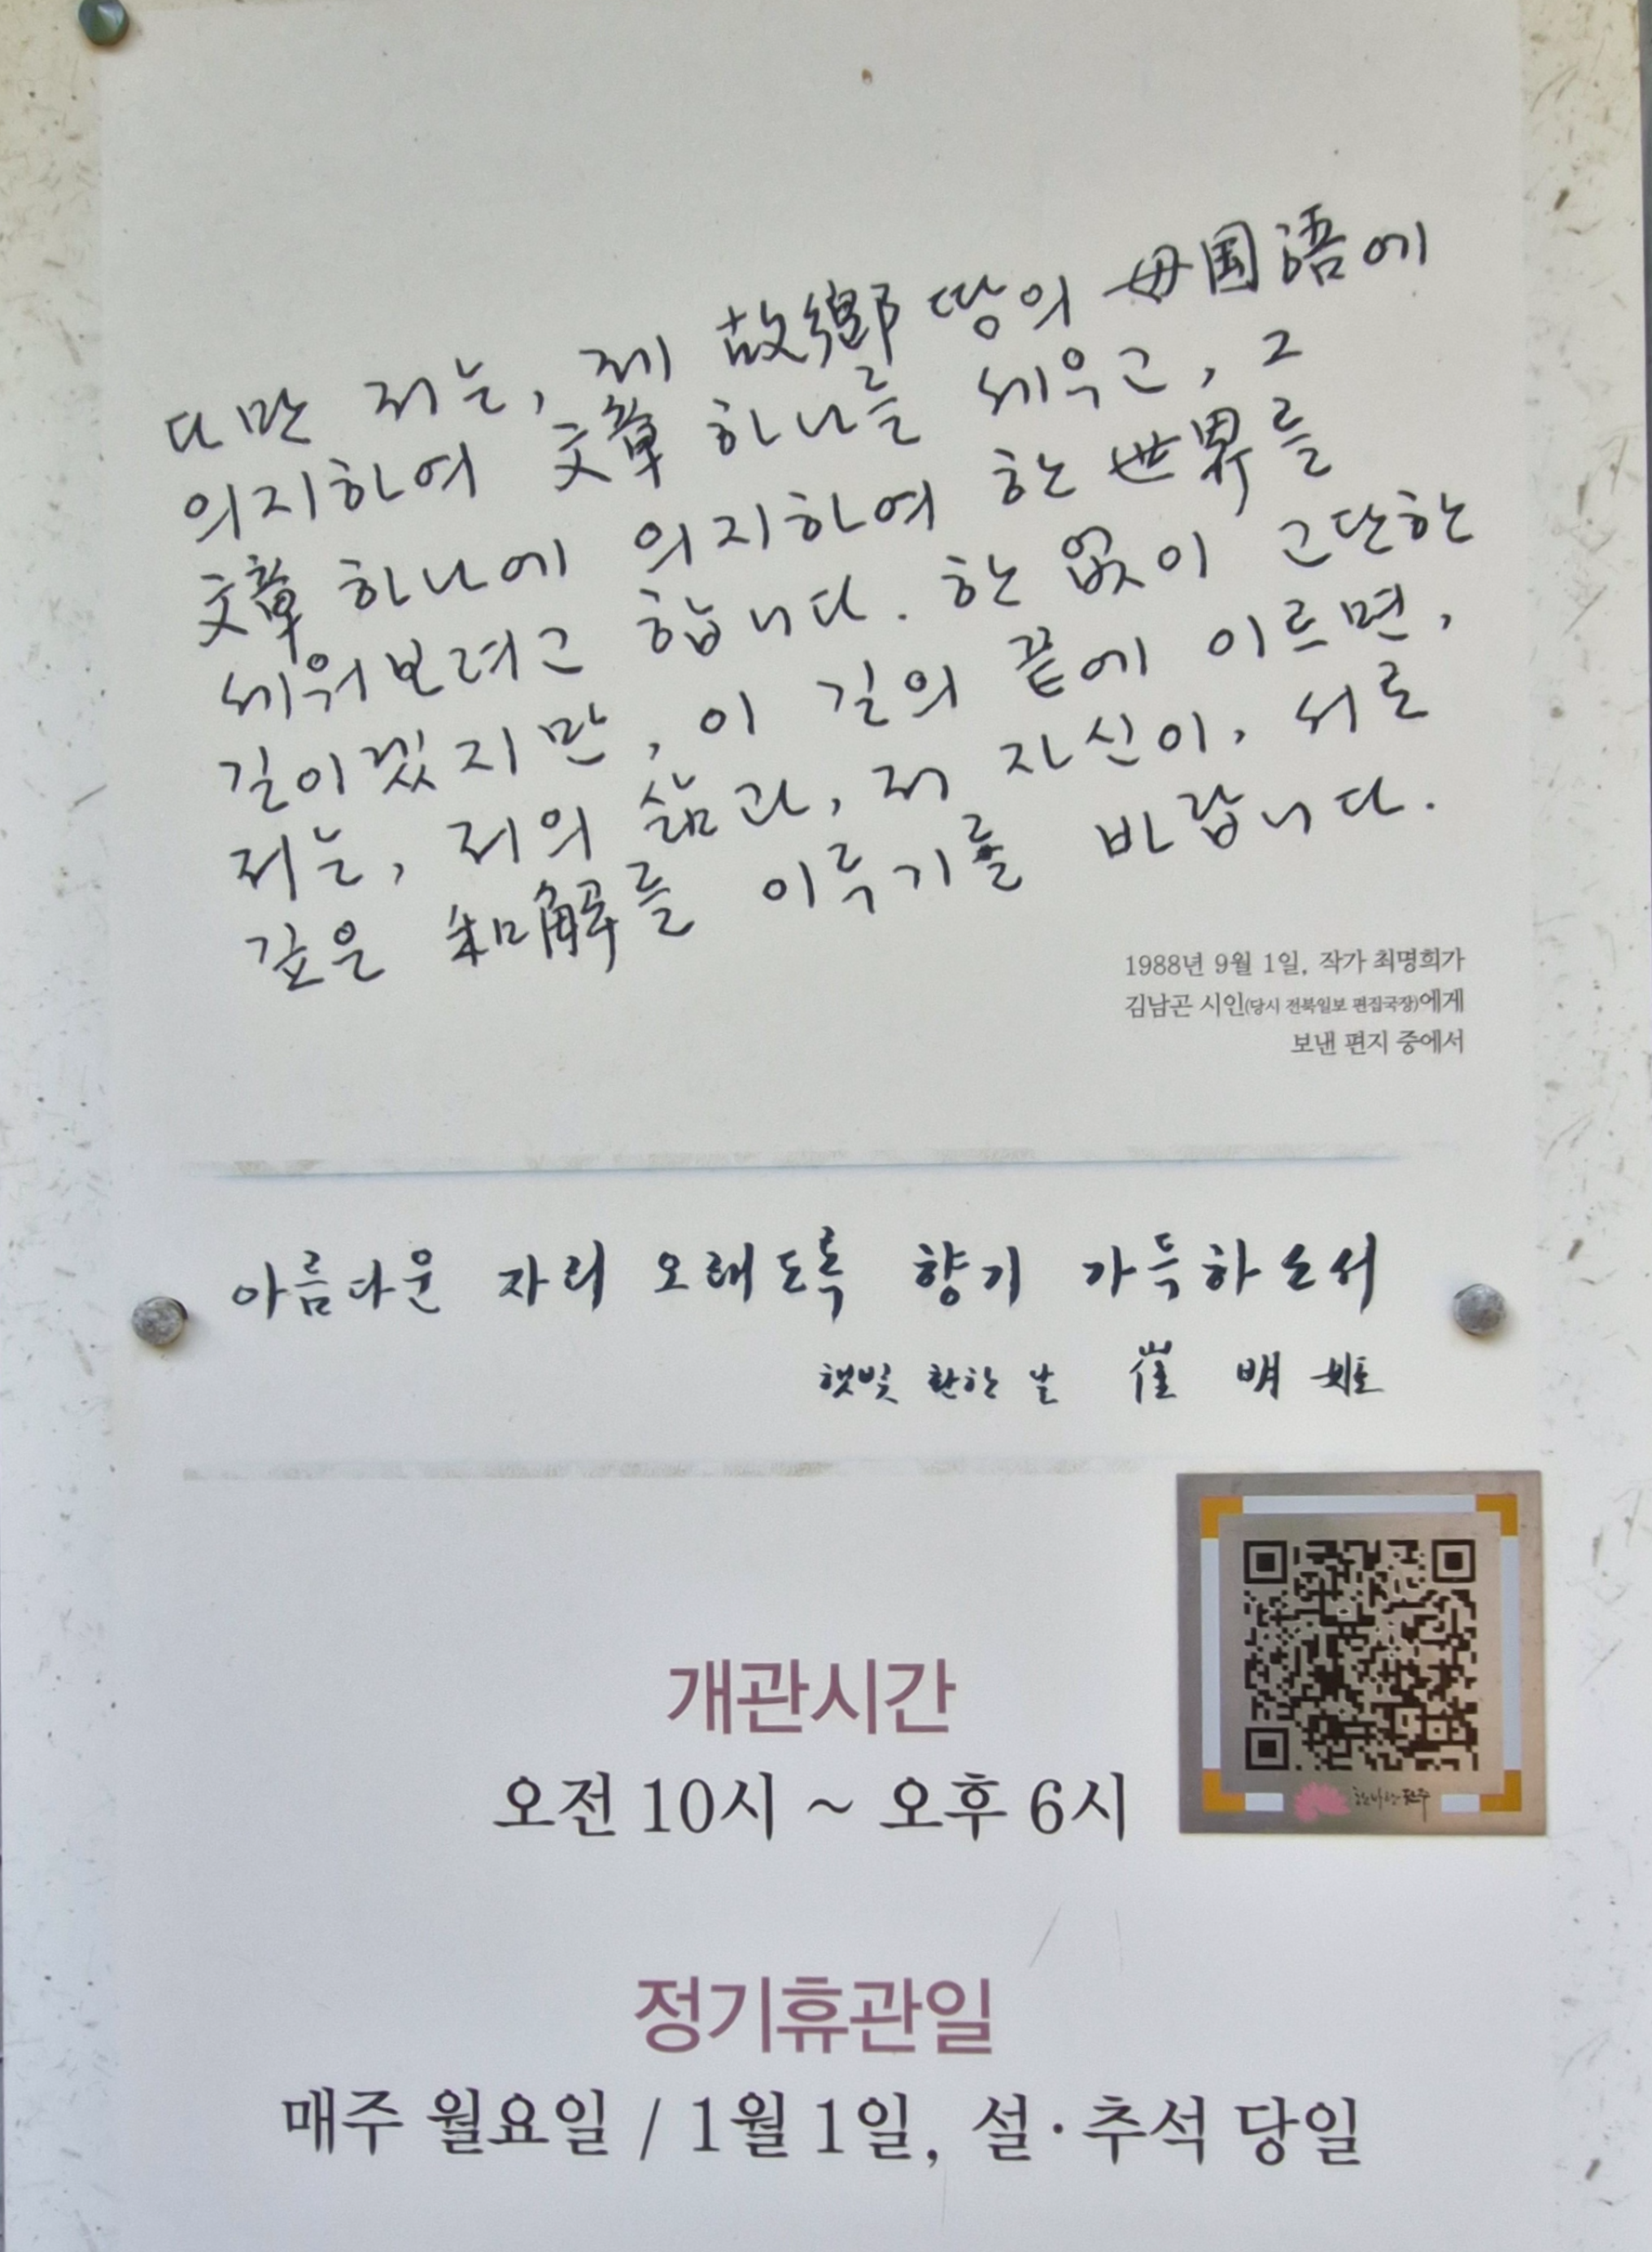 다만 저는, 제 故鄕 땅의 母国語에
의지하여 文章 하나를 세우고, 그
文章 하나에 의지하여 한 世界를
세워보려고 합니다. 한 없이 고단한
길이겠지만, 이 길의 끝에 이르면,
저는, 저의 삶과, 저 자신이, 서로
깊은 和解를 이루기를 바랍니다.
1988년 9월 1일, 작가 최명희가
김남곤 시인(당시 전북일보 편집국장)에게
보낸 편지 중에서
아름다운 자리 오래도록 향기 가득하소서
햇빛 환한 날 崔 明 姬
한바탕전주
개관시간
오전 10시 ~ 오후 6시
정기휴관일
매주 월요일 / 1월 1일, 설·추석 당일